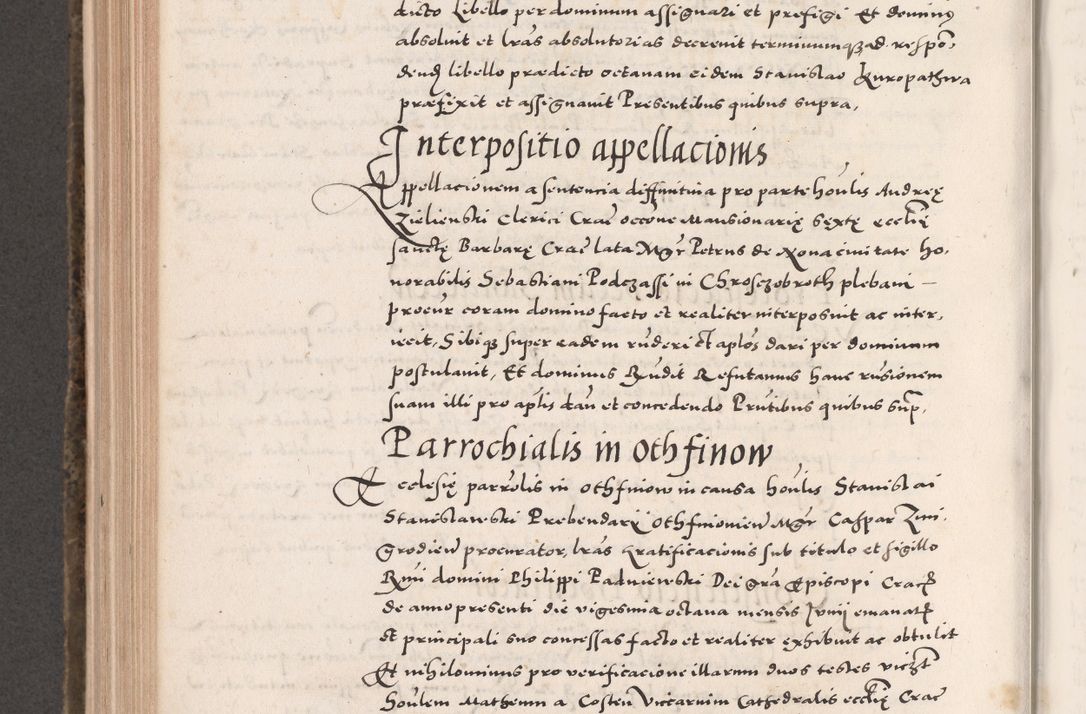 dicto Libello per dominum assignari et prefigi Et dominus
absoluit et lras absolutorias decreuit terminumqz ad respo-
dend libello prædicto octauam eidem Stanislao Kuropathwa
præfixit et assignauit Presentibus quibus supra,
Interpositio appellacionis
Appellacionem a sentencia diffinitiua pro parte honlis Andreę
Zielienski Clerici Crac occone Mansionarię sextę ecclię
sanctę Barbarę Crac lata Mgr Petrus de Noua ciuitate ho-
norabilis Sebastiani Podczassi in Chrosczobroth plebani –
procur coram domino facto et realiter interposuit ac inter-
iecit, Sibiqz super eadem ruderi et aplos dari per dominum
postulauit, Et dominus Refutanuus hanc
suam illi pro aplis dau et concedendo Pntibus quibus sup,
Parrochialis in Othfinow
Ecclesię parrolis in Othfinow in causa honlis Stanislai
Stanislawski Prebendarij Othfinowien Mgr Caspar Zmi-
grodien procurator, lras gratificacionis sub titulo et sigillo
Rmi domini Philippi Padniewski Dei gra Episcopi Crac
de anno presenti die vigesima octaua mensis Junij emanat
et principali suo concessas facto et realiter exhibuit ac obtulit
Et nihilominus pro verificacione illarum duos testes viczt
honlem Matheum a Costen Viccarium Cathedralis ecclię Crac